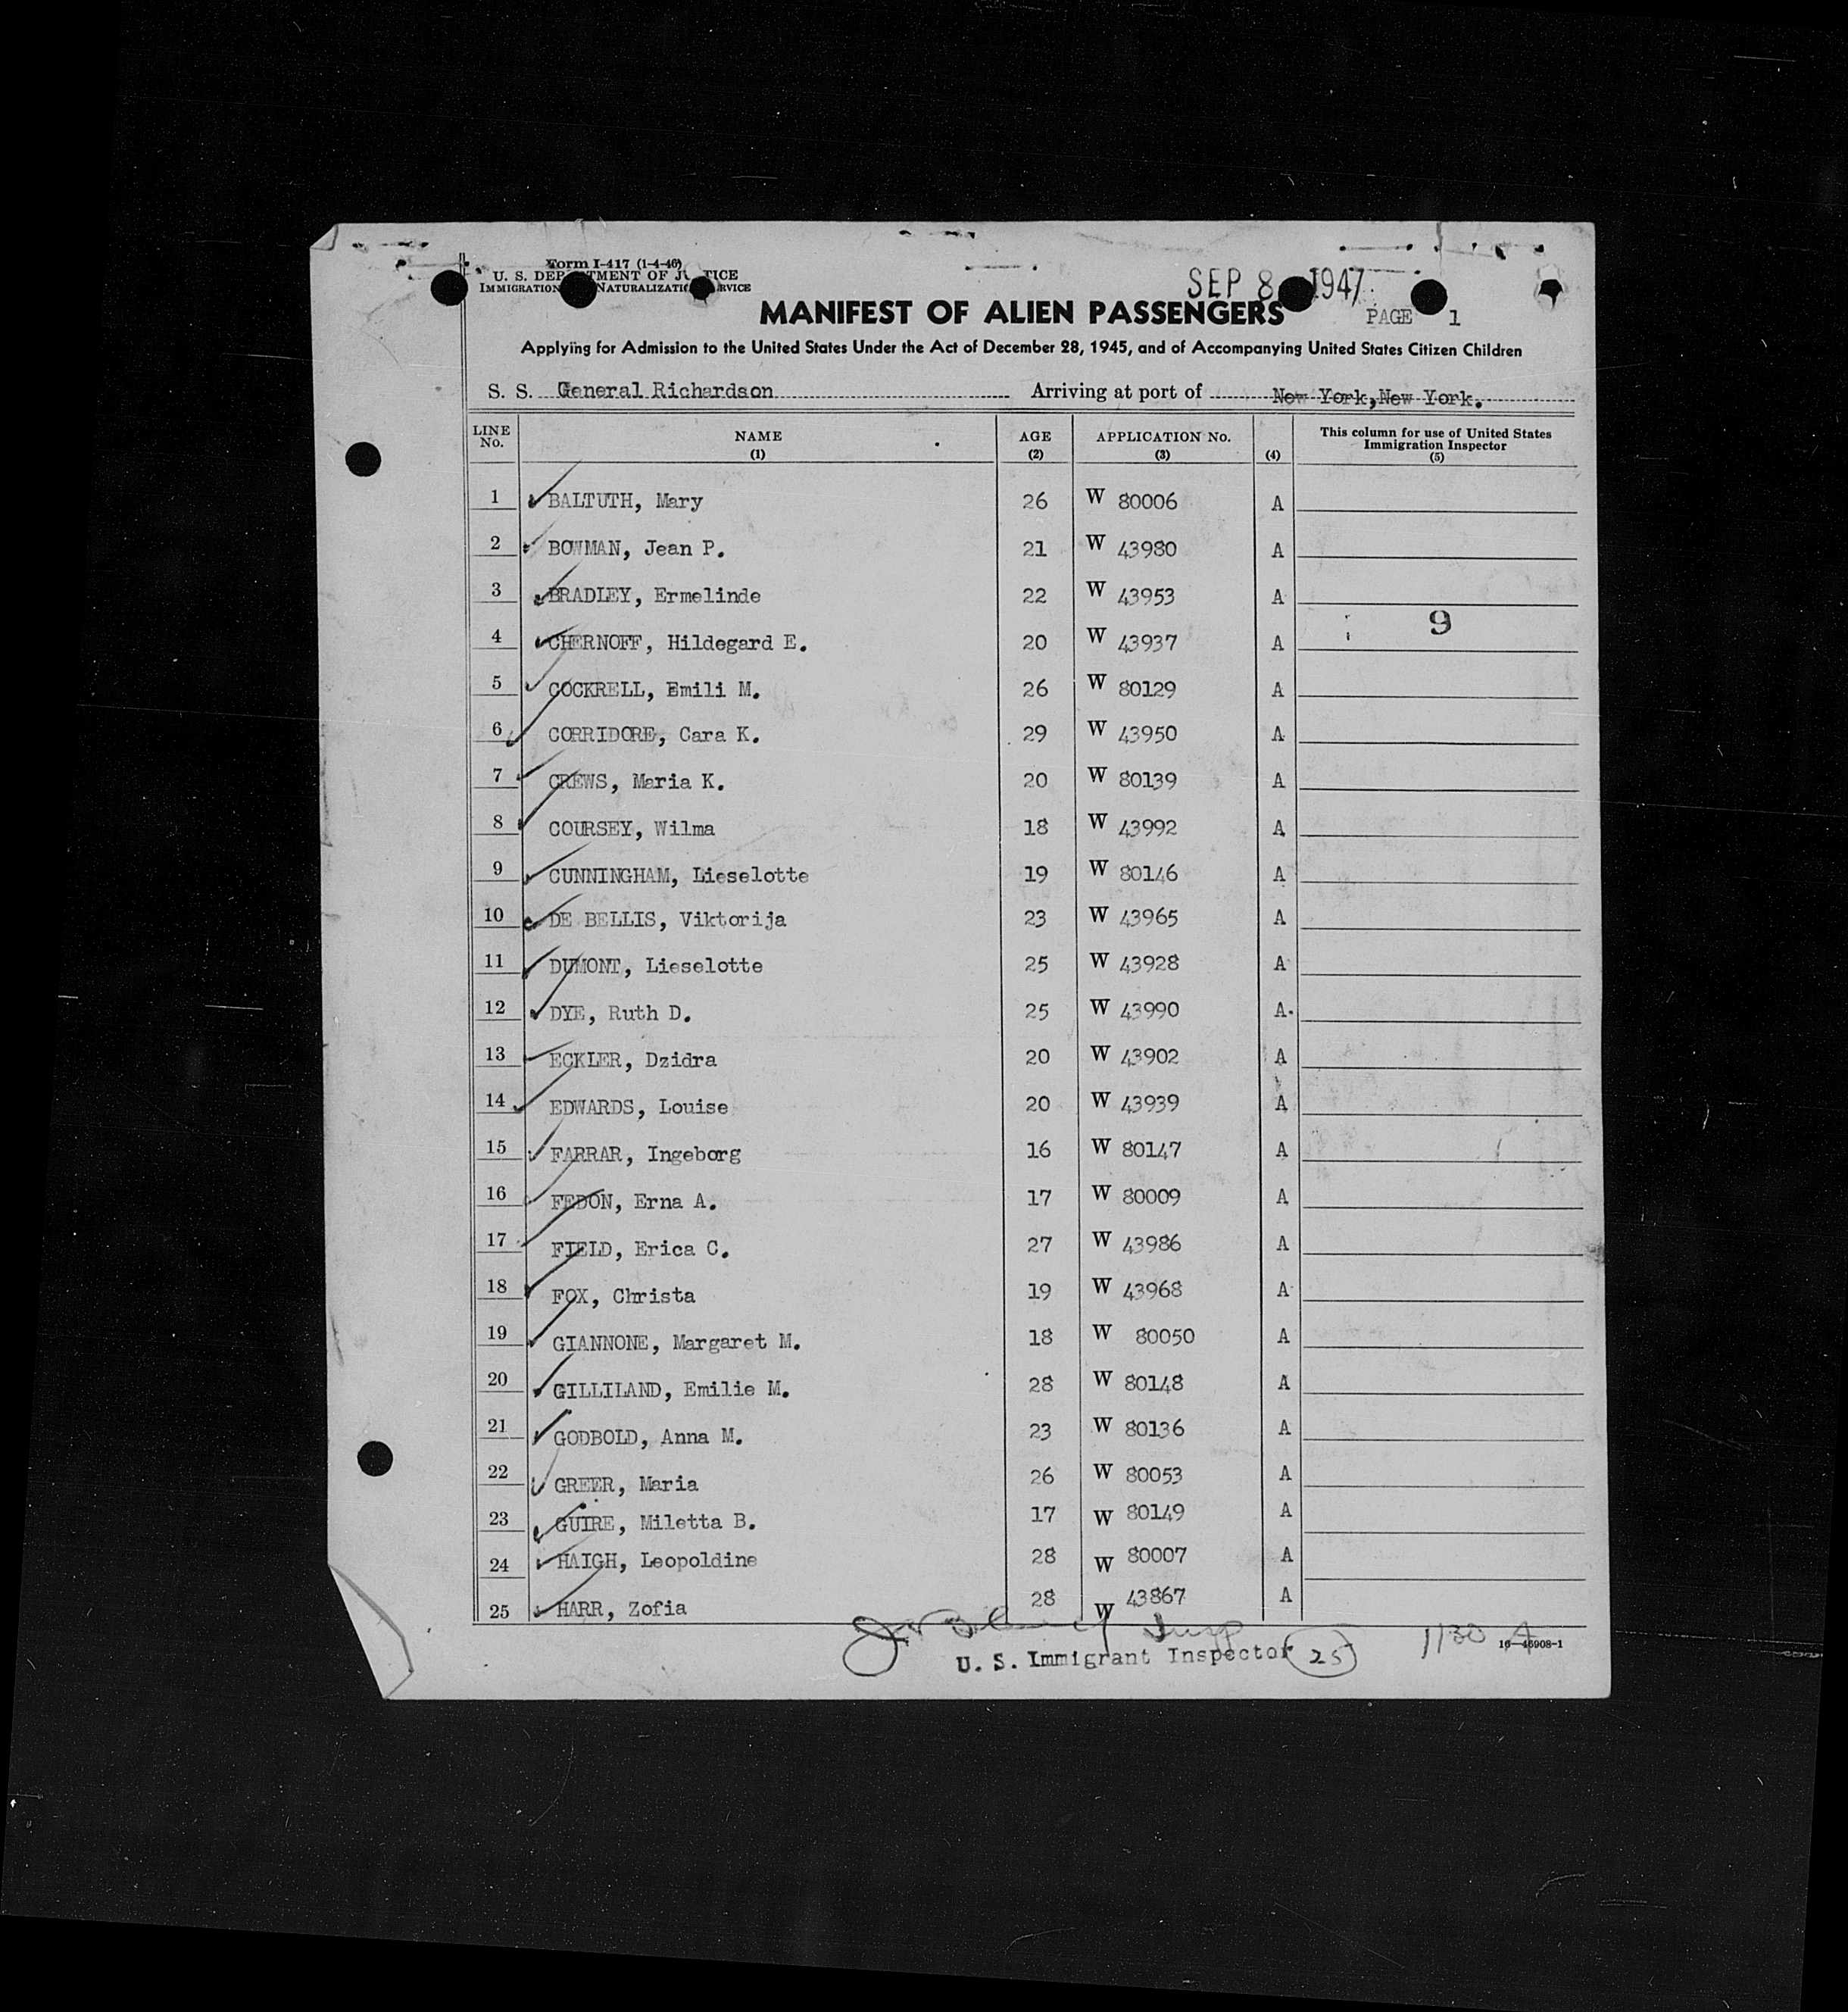 Form I-417 (1-4-46)
U. S. DEPARTMENT OF JUSTICE
IMMIGRATION NATURALIZATION SERVICE
SEP 8 1947
MANIFEST OF ALIEN PASSENGERS
PAGE 1
Applying for Admission to the United States Under the Act of December 28, 1945, and of Accompanying United States Citizen Children
S. S. General Richardson Arriving at port of New York,New York.
LINE No. NAME (1) AGE (2) APPLICATION No. (3) (4) This column for use of United States Immigration Inspector (5)
1 BALTUTH, Mary 26 W 80006 A
2 BOWMAN, Jean P. 21 W 43980 A
3 BRADLEY, Ermelinde 22 W 43953 A
9
4 CHERNOFF, Hildegard E. 20 W 43937 A
5 COCKRELL, Emili M. 26 W 80129 A
6 CORRIDORE, Cara K. 29 W 43950 A
7 CREWS, Maria K. 20 W 80139 A
8 COURSEY, Wilma 18 W 43992 A
9 CUNNINGHAM, Lieselotte 19 W 80146 A
10 DE BELLIS, Viktorija 23 W 43965 A
11 DUMONT, Lieselotte 25 W 43928 A
12 DYE, Ruth D. 25 W 43990 A
13 ECKLER, Dzidra 20 W 43902 A
14 EDWARDS, Louise 20 W 43939 A
15 FARRAR, Ingeborg 16 W 80147 A
16 FEDON, Erna A. 17 W 80009 A
17 FIELD, Erica C. 27 W 43986 A
18 FOX, Christa 19 W 43968 A
19 GIANNONE, Margaret M. 18 W 80050 A
20 GILLILAND, Emilie M. 28 W 80148 A
21 GODBOLD, Anna M. 23 W 80136 A
22 GREER, Maria 26 W 80053 A
23 GUIRE, Miletta B. 17 W 80149 A
24 HAIGH, Leopoldine 28 W 80007 A
25 HARR, Zofia 28 W 43867 A
U. S. Immigrant Inspector 25
1130 A
16—46908-1